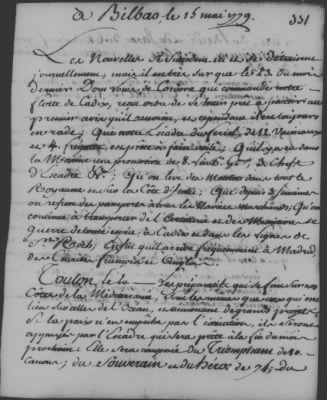 à Bilbao, le 15 mai 1779.
331
Les Nouvelles
journellement; mais il est sûr que le 23. du mois
dernier Dom Louis de Cordova qui commande notre
flote de Cadix, reçut ordre de se tenir prêt à partir au
premier avis qu'il auroit, et cependant il est toujours
en rade; Que notre Escadre du Ferrol, de 12. Vaisseaux
et 4. frégates, est prête à faire voile; Qu'il y a eu dans
la Marine une promotion de 8. Lieut. Gx. 3. Chefs
d'Escadre &c.; Qu'on leve des Matelots dans tout le
Royaume et sur la Côte d'Italie; Que depuis 3. semaines
on refuse des passeports à tous les Navires Marchands; Qu'on
continue à transporter de l'Artillerie et des Munitions de
guerre de toute espece, à Cadix et dans les Lignes de
St. Roch; Enfin qu'il arrive fréquemment à Madrid
des Couriers françois et Anglois.
Toulon, le 10. Les préparatifs qui se font sur nos
Côtes de la Méditerranée, sont les mêmes que ceux qui ont
lieu sur celles de l'Océan, et annoncent de grands projets.
Si la paix n'en empêche pas l'exécution, ils seront
appuyés par l'Escadre qui sera prête à la fin du mois
prochain: Elle sera composée du Triomphant de 80.
Canons; du Souverain et du Héros de 74; du